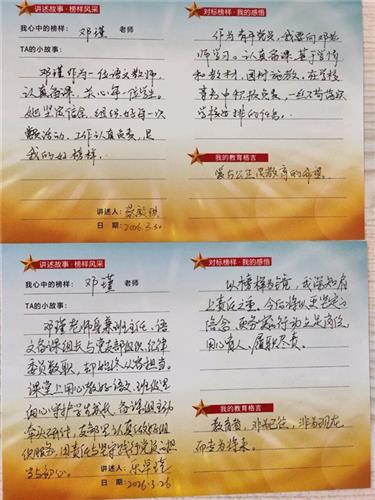 讲述故事·榜样风采
我心中的榜样： 邓瑾 老师
TA的小故事：
邓瑾作为一位语文教师，
认真备课，关心每一位学生。
她坚定信念，组织好每一次
活动，工作认真负责，是
我的好榜样。
讲述人：
日 期：2026.3.30
对标榜样·我的感悟
作为青年党员，我要向邓老
师学习。认真备课，基于学情
和教材，因材施教，在学校
教育中积极负责，一丝不苟
学校安排的任务。
我的教育格言
爱与公正是教育的
讲述故事·榜样风采
我心中的榜样： 邓瑾 老师
TA的小故事：
邓瑾老师身兼班主任、语
文备课组长与党支部组织纪律
委员数职，却始终从容担当。
课堂上用心教好语文，班级里
细心守护学生成长，备课组主动
牵头研讨，支部里认真做好组
织服务，用责任与坚守践行党员的担
当与初心。
讲述人：
日 期：2026.3.26
对标榜样·我的感悟
以榜样为镜，我深知肩
上责任之重。今后将以更坚定的
信念、更务实的行动立足岗位，
用心育人，履职尽责。
我的教育格言
教育者，非为已往，非为现在，
而专为将来。